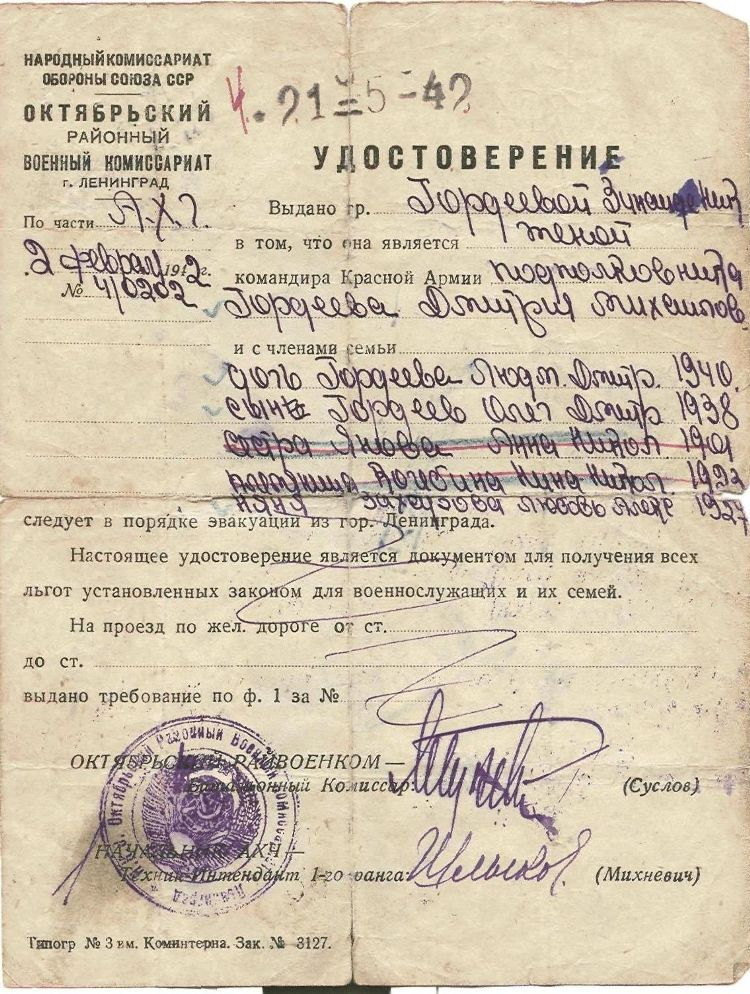 НАРОДНЫЙ КОМИССАРИАТ
ОБОРОНЫ СОЮЗА ССР
ОКТЯБРЬСКИЙ
РАЙОННЫЙ
ВОЕННЫЙ КОМИССАРИАТ
г. ЛЕНИНГРАД
По части А.Х.Ч.
2 февраля 1942 г.
№ 4/0202
21 = 5 - 42
УДОСТОВЕРЕНИЕ
Выдано гр. Гордеевой Зинаиде Ник
в том, что она является женой
командира Красной Армии подполковника
Гордеева Дмитрия Михайлов
и с членами семьи
дочь Гордеева Людм. Дмитр. 1940.
сын Гордеев Олег Дмитр 1938
сестра Янова Анна Никол 1901
Нина Никол 1923
няня Любовь 1927
следует в порядке эвакуации из гор. Ленинграда.
Настоящее удостоверение является документом для получения всех
льгот установленных законом для военнослужащих и их семей.
На проезд по жел. дороге от ст.
до ст.
выдано требование по ф. 1 за №
ОКТЯБРЬСКИЙ РАЙВОЕНКОМ —
Батальонный Комиссар: (Суслов)
НАЧАЛЬНИК АХЧ —
Техник-Интендант 1-го ранга: (Михневич)
Октябрьский Районный Военный Комиссариат
Ленинград
Типогр № 3 им. Коминтерна. Зак. № 3127.